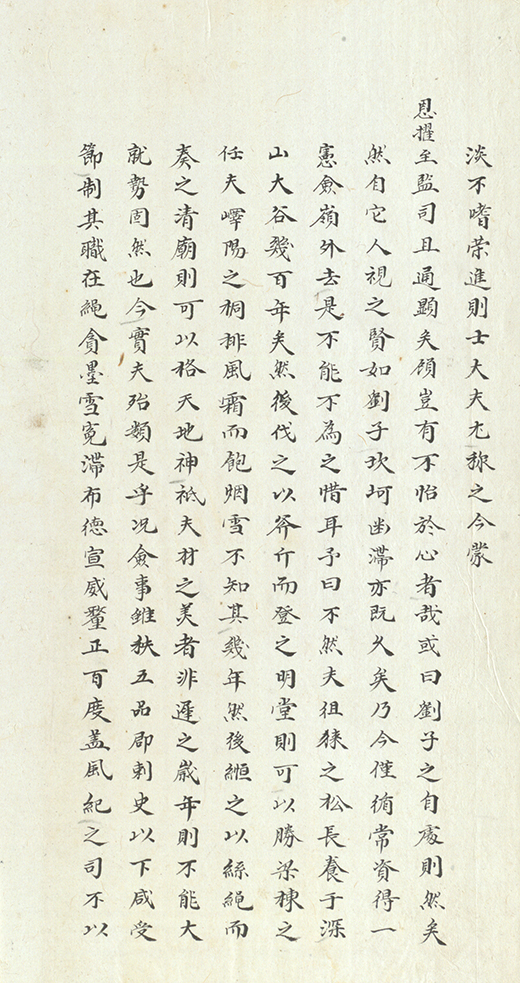 淡不嗜荣進則士大夫尤称之今蒙
恩擢至監司且通顯矣顧豈有不怡於心者哉或曰劉子之自處則然矣
然自它人視之賢如劉子坎坷幽滯亦既久矣乃今僅循常資得一
憲僉嶺外去是不能不為之惜耳予曰不然夫徂猍之松長養于深
山大谷幾百年矣然後伐之以斧斤而登之明堂則可以勝梁棟之
任夫嶧陽之桐排風霜而飽烟雪不知其幾年然後縆之以絲繩而
奏之清廟則可以格天地神祇夫材之美者非遲之歲年則不能大
就勢固然也今實夫殆類是乎况僉事雖秩五品郡刺史以下咸受
節制其職在繩貪墨雪寃滯布德宣威釐正百度盖風紀之司不以